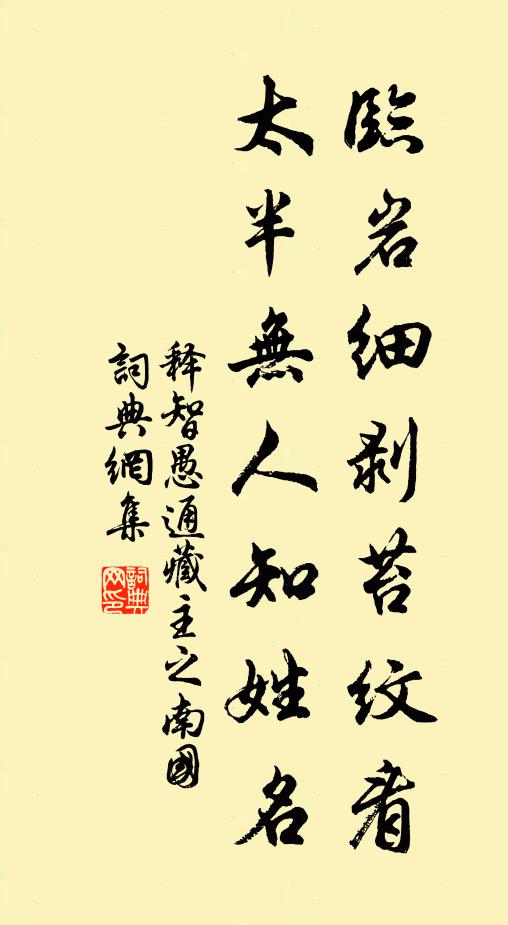 臨岩細剥苔紋看
太半無人知姓名
释智愚通藏主之南國
詞典網集
詞典網印